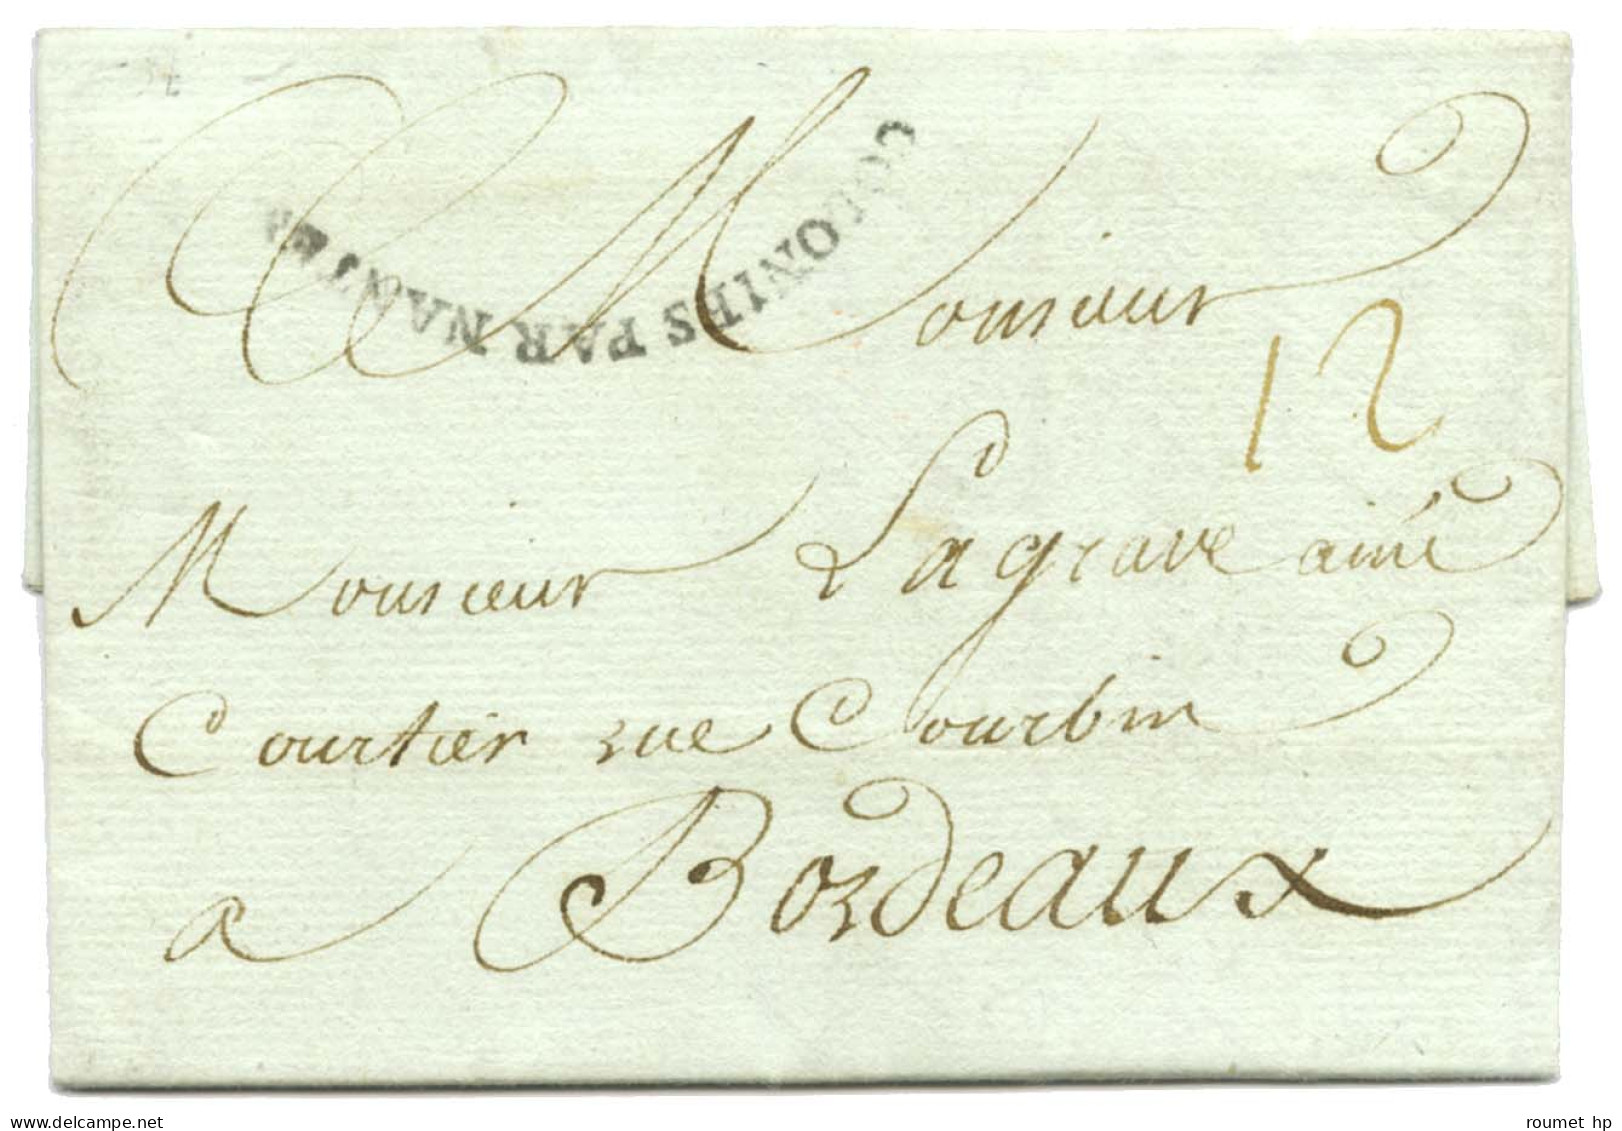 COLONIES PAR NANTES
Monsieur
12
Monsieur Lagrave ainé
Courtier rue Courbin
a Bordeaux
delcampe.net
roumet hp